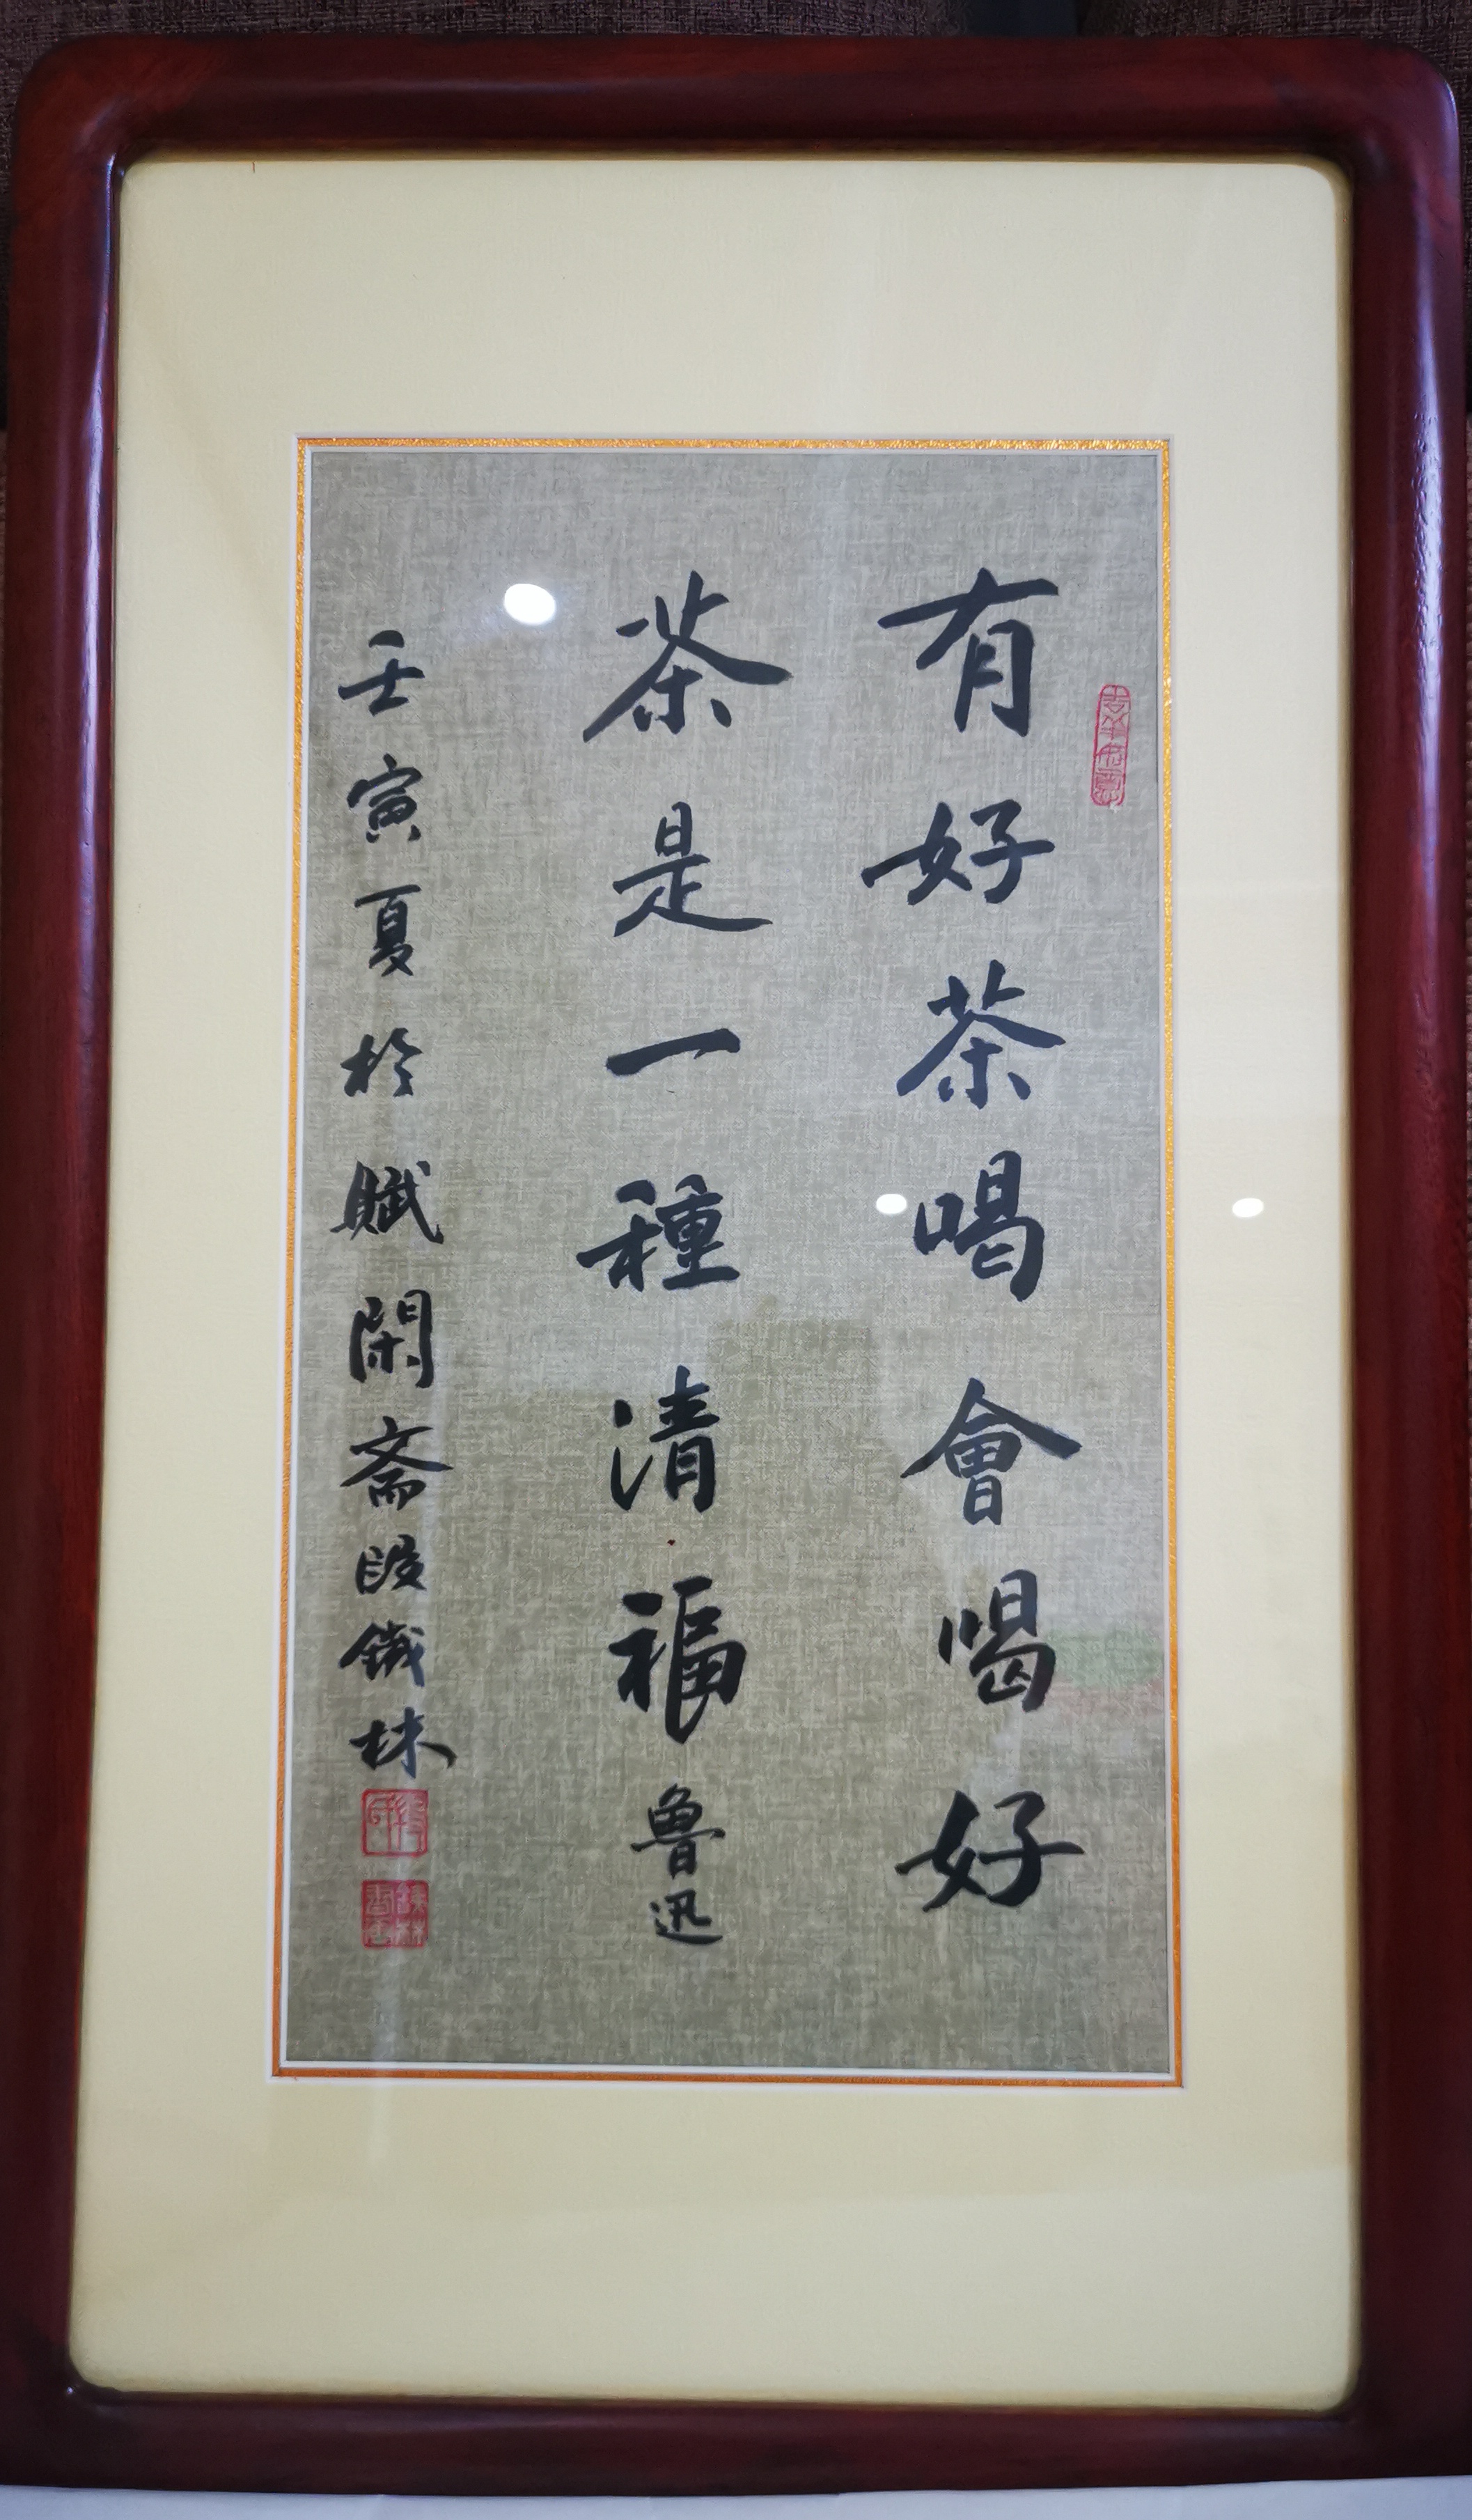 有好茶喝會喝好
茶是一種清福 魯迅
壬寅夏於賦閑斎段鐵林